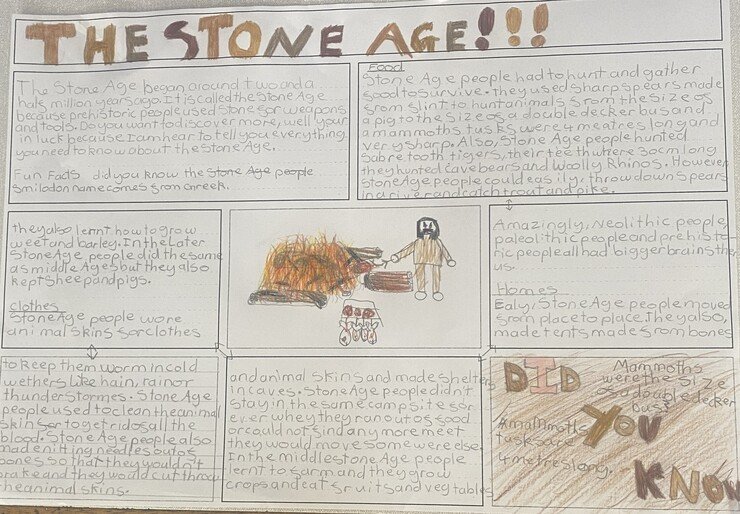 THE STONE AGE!!!
The Stone Age began around two and a
half million years ago. It is called the Stone Age
because prehistoric people used Stone for weapons
and tools. Do you want to discover more, well your
in luck because I am hear to tell you everything
you need to know about the Stone Age.
Fun Facts did you know the Stone Age people
smilodon name comes from Greek.
Food
Stone Age people had to hunt and gather
food to survive. they used sharp spears made
from flint to hunt animals from the size of
a pig to the size of a double decker bus and
a mammoths tusks were 4 meatres long and
very sharp. Also, Stone Age people hunted
sabre tooth tigers, their teeth where 50cm long
they hunted cave bears and Woolly Rhinos. However
Stone Age people could easily, throw down spears
in a river and catch trout and pike.
they also lernt how to grow
weet and barley. In the Later
Stone Age people did the same
as middle Ages but they also
kept sheep and pigs.
clothes
Stone Age people wore
animal skins for clothes
Amazingly, Neolithic people,
paleolithic people and prehisto
ric people all had bigger brains the
us.
Homes
Ealy, Stone Age people moved
from place to place. They also,
made tents made from bones
to keep them worm in cold
wethers like hain, rain or
thunder stormes. Stone Age
people used to clean the animal
skins for to get rid of all the
blood. Stone Age people also
made nitting needles out of
bones so that they wouldn't
brake and they would cut throu
he animal skins.
and animal skins and made shelters
in caves. Stone Age people didn't
stay in the same camp sites for
ever whey they ran out of food
or could not find any more meet
they would move some were else.
In the middle stone Age people
lernt to farm and they grow
crops and eat fruits and vegtables
DID
YOU
KNOW
Mammoths
were the size
of a double decker
bus
Mammoths
tusks are
4 metres long.